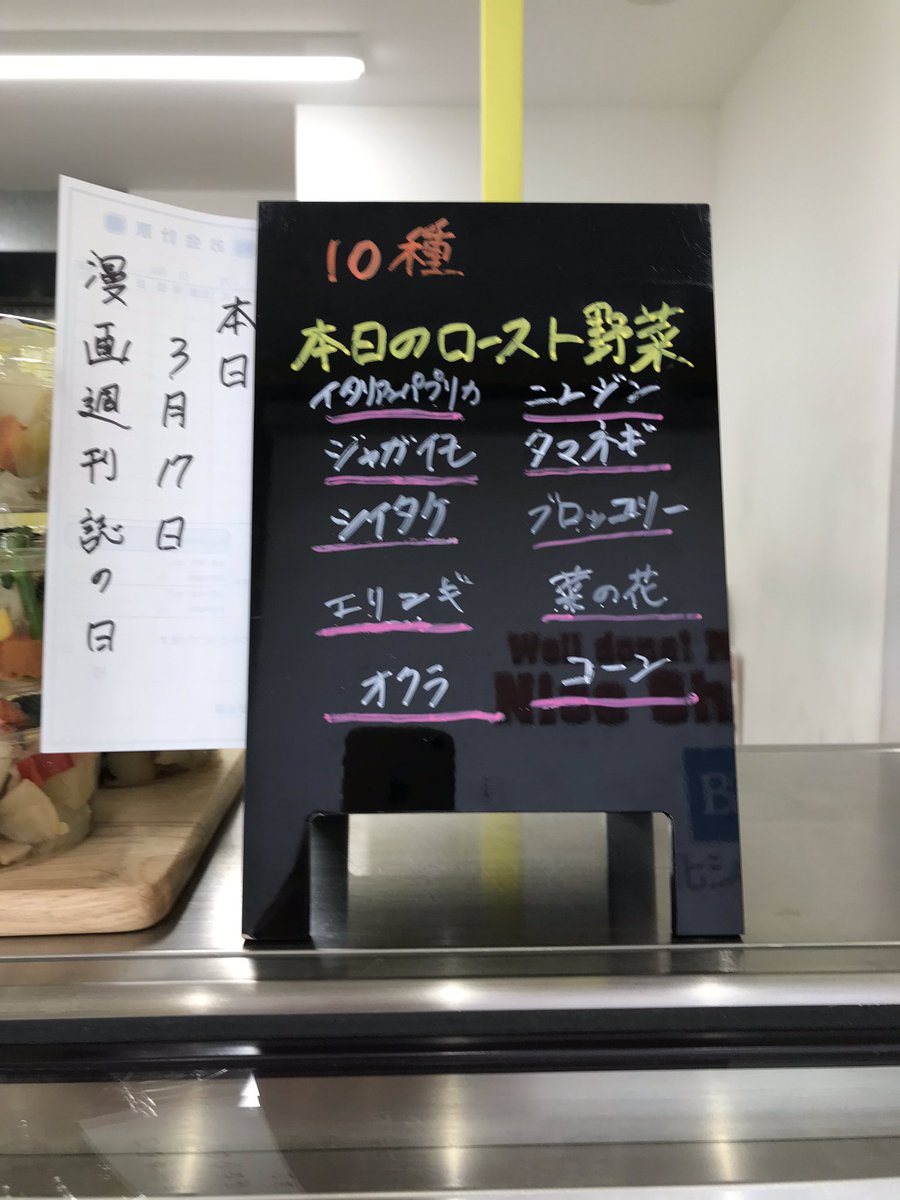 本日
3月17日
漫画週刊誌の日
お会計票
10種
本日のロースト野菜
イタリアンパプリカ
ニンジン
ジャガイモ
タマネギ
シイタケ
ブロッコリー
エリンギ
菜の花
オクラ
コーン
Well done!
Nice Sh
B
ヒシ